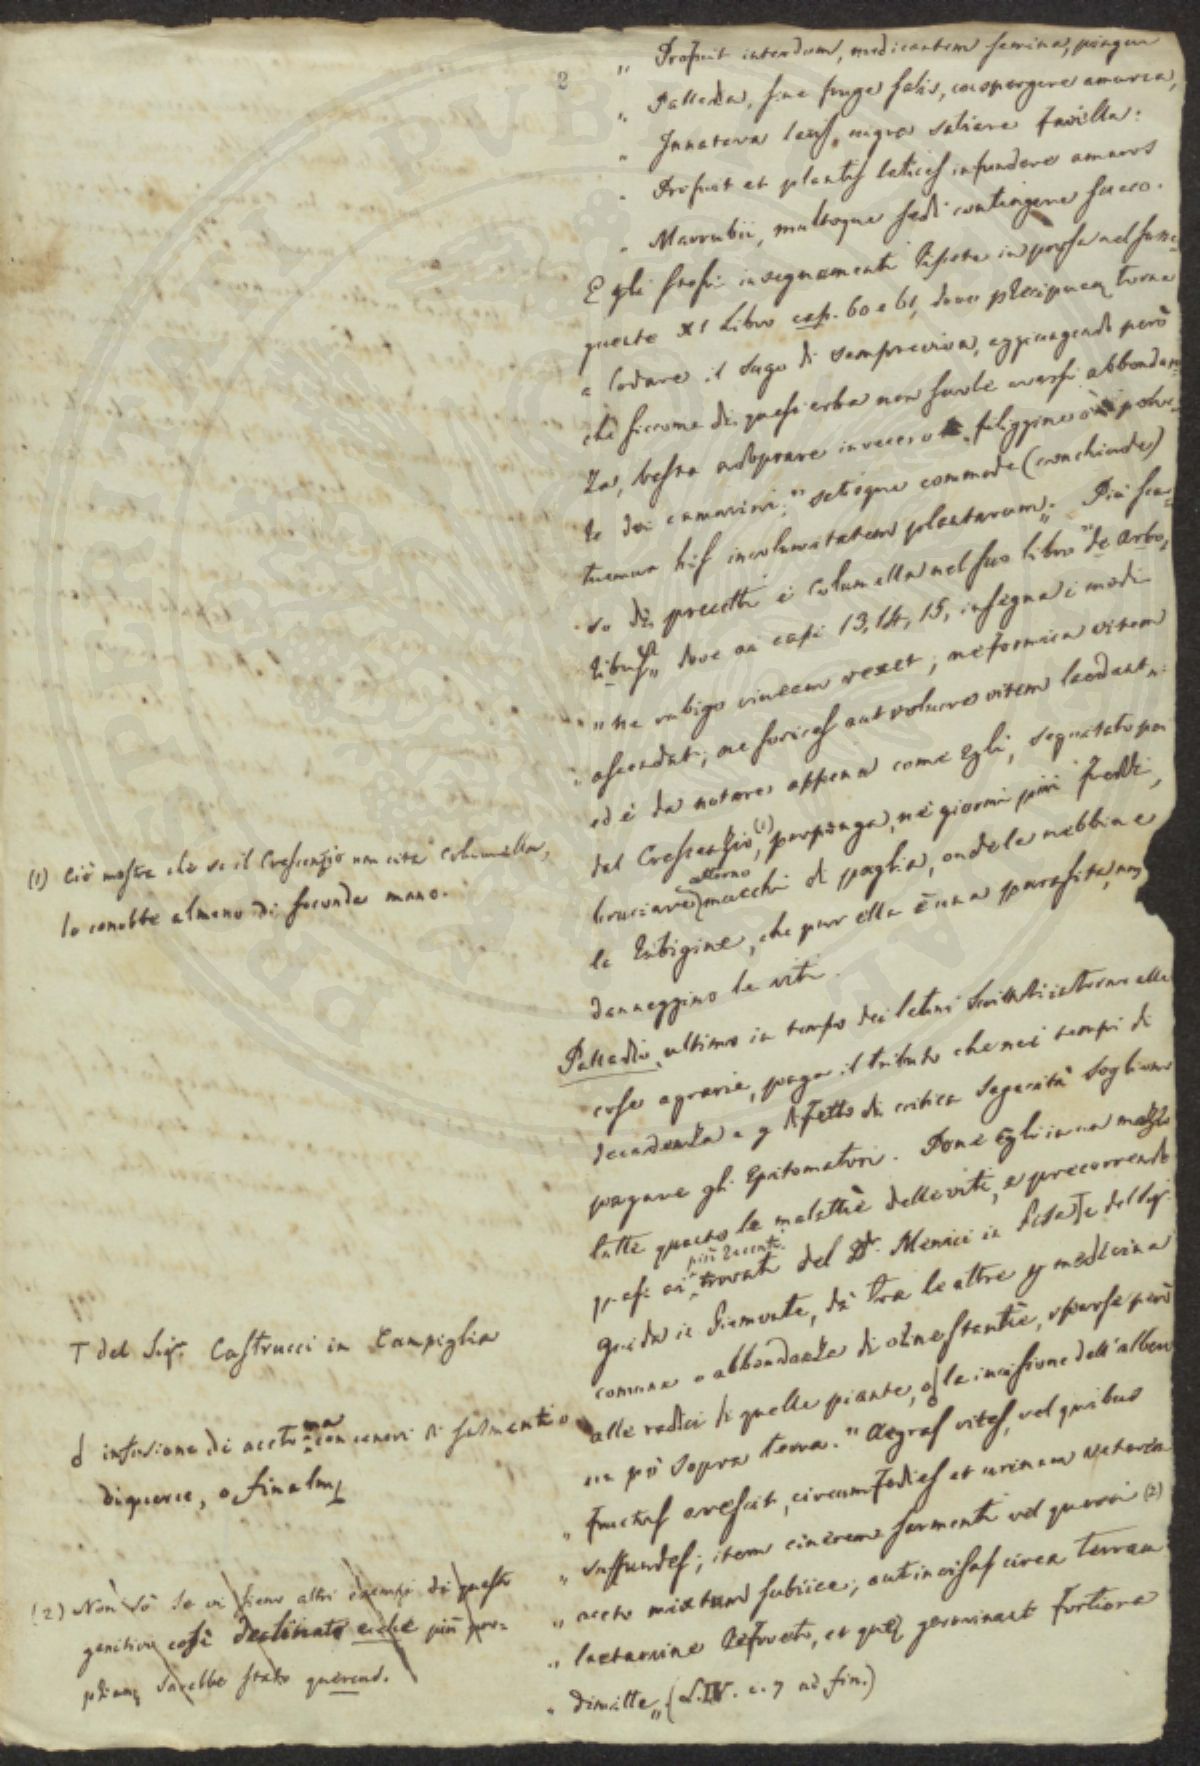 2
„ Profuit interdum, medicantem semina, pingui
„ Palladia, sine fruge salis, conspergere amurca,
„ Innatava laris, nigra satiare favilla:
„ Profuit et plantis latices infundere amaros
„ Marrubii, multoque sedi contingere succo.
E gli stessi insegnamenti ripete in prosa nel susse-
guente XI Libro cap. 60 e 61, dove torna
a lodare il sugo di sempreviva, aggiungendo però
che siccome di quest'erba non suole aversi abbondan-
za, basta adoprare invece o filiggine o polve-
re dei cammini; „ satisque commode (conchiude)
tuemur his incolumitatem plantarum„. Più scar-
so di precetti è Columella nel suo libro „ de Arbo-
ribus„ dove ai capi 13, 14, 15, insegna i modi
„ ne rubigo vineam vexet; ne formica vitem
„ ascendat; ne sorices aut volucre vitem laedant„:
ed è da notare appena come Egli, seguitato poi
dal Crescenzio (1), proponga, nei giorni più freddi,
bruciare attorno mucchi di paglia, onde la nebbia e
la rubigine, che pur ella è una parasita, non
danneggino le viti.
Palladio, ultimo in tempo dei latini Scrittori intorno alle
cose agrarie, paga il tributo che nei tempi di
decadenza e difetto di critica sagacità sogliono
pagare gli Epitomatori. Pone Egli in un mazzo
tutte quante le malattie delle viti, e precorrendo
quasi ai più recenti trovati del Dr. Menici in Pisa T e del Sig.
Guida in Piemonte, dà tra le altre medicina
comune o abbondanza di orine stantie, sparse però
alle radici di quelle piante, o la incisione dell'albero
un pò sopra terra. „ Aegras vites, vel quibus
„ fructus arescit, circumfodies et urinam veterem
„ suffundes; item cinerem sarmenti vel querci (2)
„ aceto mixtum subiice; aut incisas circa terram
„ laetamine refoveto, et quae germinant fortiora
„ dimitte„. (L. IV. c. 7 ad fin.)
(1) Ciò mostra che se il Crescenzio non cita Columella,
lo conobbe almeno di seconda mano.
T del Sigr. Castrucci in Campiglia
d infusione di aceto ma con ceneri di sarmenti o
di querce, o finalm
(2) Non sò se vi sieno altri esempi di questo
genitivo così declinato e che più pro-
priam sarebbe stato quercus.